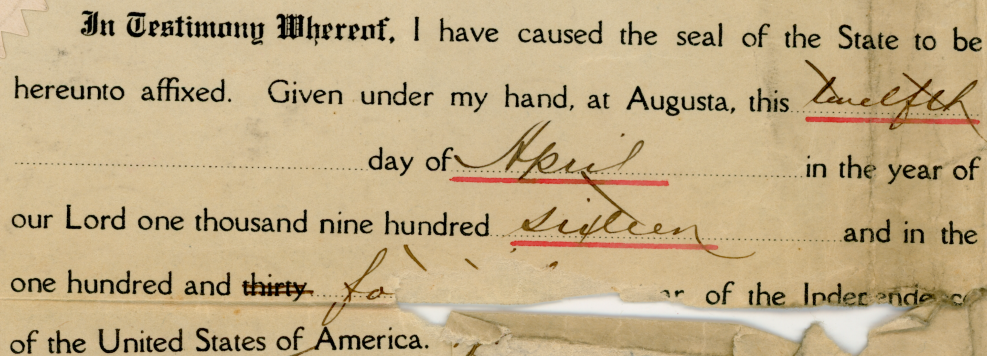 In Testimony Whereof, I have caused the seal of the State to be
hereunto affixed. Given under my hand, at Augusta, this twelfth
day of April in the year of
our Lord one thousand nine hundred sixteen and in the
one hundred and thirty of the
of the United States of America.